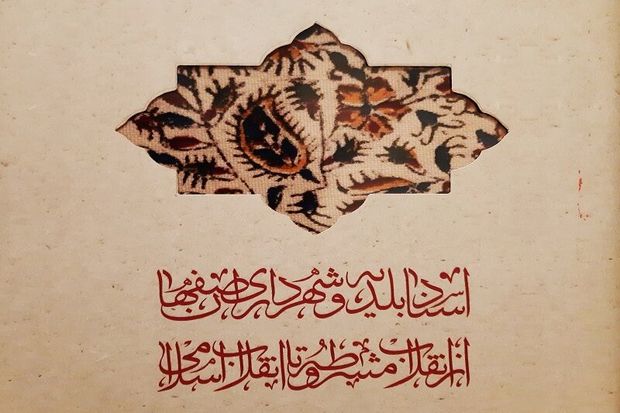 اسناد بلدیه و شهرداری اصفهان
از انقلاب مشروطه تا انقلاب اسلامی